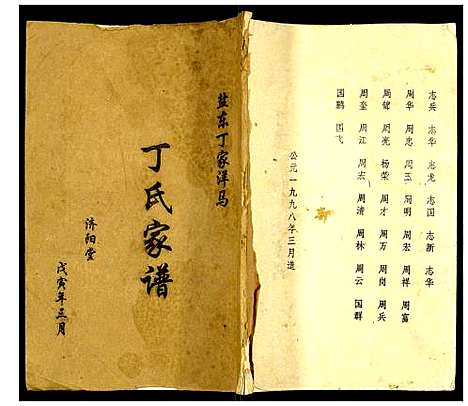 盐东丁家洋马
丁氏家谱
济阳堂
戊寅年三月
志兵 志华 志龙 志国 志新 志华
周华 周忠 周玉 周明 周宏 周祥 周富
周锦 周亮 杨荣 周才 周万 周岗 周兵
周奎 周江 周宏 周清 周林 周云 国群
国鹅 国飞
公元一九九八年三月造